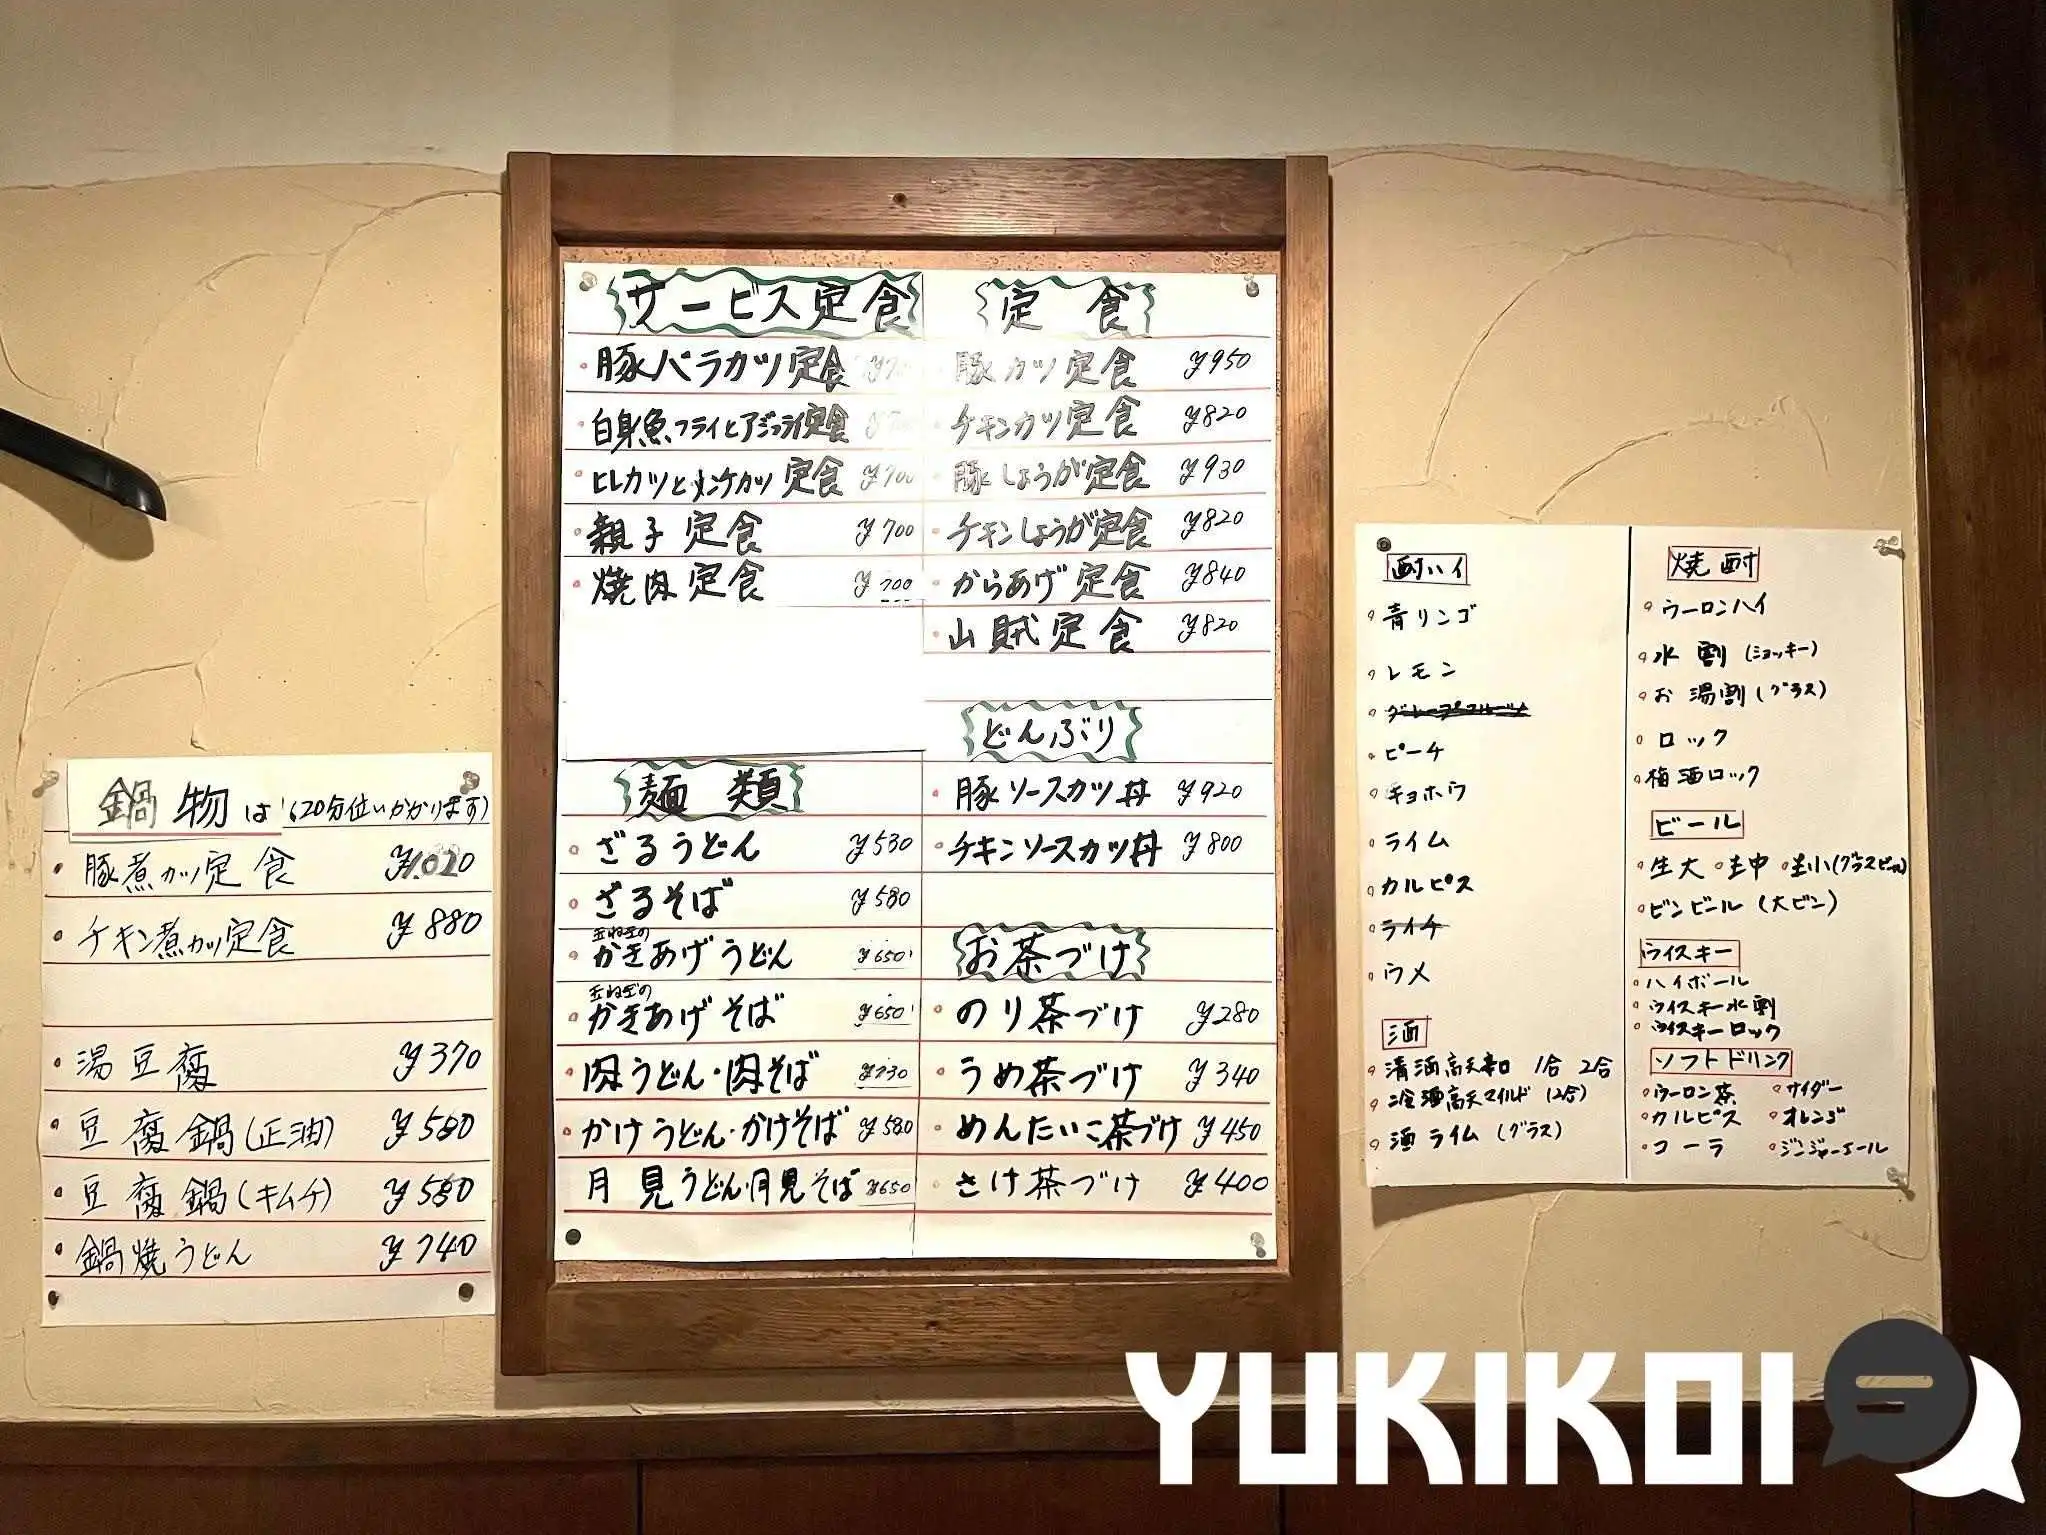 鍋物は(20分位いかかります)
・豚煮カツ定食 ¥1.020
・チキン煮カツ定食 ¥880
・湯豆腐 ¥370
・豆腐鍋(正油) ¥580
・豆腐鍋(キムチ) ¥580
・鍋焼うどん ¥740
サービス定食
・豚バラカツ定食
・白身魚フライとアジフライ定食
・ヒレカツとメンチカツ定食 ¥700
・親子定食 ¥700
・焼肉定食 ¥700
麺類
・ざるうどん ¥530
・ざるそば ¥580
玉ねぎの
・かきあげうどん ¥650
玉ねぎの
・かきあげそば ¥650
・肉うどん・肉そば ¥730
・かけうどん・かけそば ¥580
月見うどん・月見そば ¥650
定食
・豚カツ定食 ¥950
・チキンカツ定食 ¥820
・豚しょうが定食 ¥930
・チキンしょうが定食 ¥820
・からあげ定食 ¥840
・山賊定食 ¥820
どんぶり
・豚ソースカツ丼 ¥920
・チキンソースカツ丼 ¥800
お茶づけ
・のり茶づけ ¥280
・うめ茶づけ ¥340
・めんたいこ茶づけ ¥450
・さけ茶づけ ¥400
酎ハイ
青リンゴ
レモン
グレープフルーツ
ピーチ
キョホウ
ライム
カルピス
ライチ
ウメ
酒
清酒高天辛口 1合 2合
冷酒高天マイルド (2合)
酒ライム (グラス)
焼酎
ウーロンハイ
水割 (ジョッキー)
お湯割 (グラス)
ロック
梅酒ロック
ビール
生大 生中 生小(グラスビール)
ビンビール (大ビン)
ウイスキー
ハイボール
ウイスキー水割
ウイスキーロック
ソフトドリンク
ウーロン茶 サイダー
カルピス オレンジ
コーラ ジンジャーエール
YUKIKOI